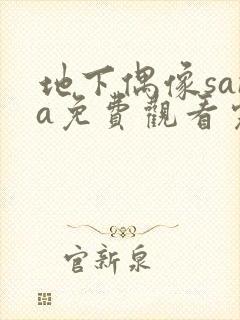 地下偶像sa
a免費觀看
官新泉